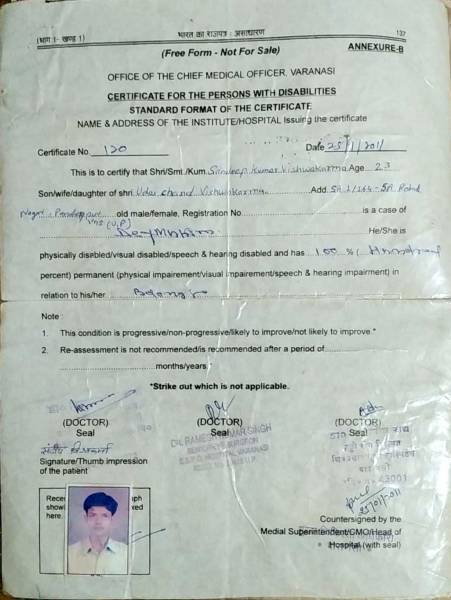 (भाग 1- खण्ड 1) भारत का राजपत्र : असाधारण 137
(Free Form - Not For Sale) ANNEXURE-B
OFFICE OF THE CHIEF MEDICAL OFFICER, VARANASI
CERTIFICATE FOR THE PERSONS WITH DISABILITIES
STANDARD FORMAT OF THE CERTIFICATE
NAME & ADDRESS OF THE INSTITUTE/HOSPITAL Issuing the certificate
Certificate No. 120 Date 25/1/2011
This is to certify that Shri/Smt./Kum. Sandeep Kumar Vishwakarma Age 23
Son/wife/daughter of shri Udai chand Vishwakarma Add.
Nagar, old male/female, Registration No. is a case of
He/She is
physically disebled/visual disabled/speech & hearing disabled and has 100 % (Hundred
percent) permanent (physical impairement/visual impairement/speech & hearing impairment) in
relation to his/her
Note :
1. This condition is progressive/non-progressive/likely to improve/not likely to improve.*
2. Re-assessment is not recommended/is recommended after a period of
months/years.*
*Strike out which is not applicable.
(DOCTOR) (DOCTOR) (DOCTOR)
Seal Seal Seal
संदीप विश्वकर्मा
Signature/Thumb impression
of the patient
Rece ph
showi xed
here.
25/01/2011
Countersigned by the
Medial Superintendent/CMO/Head of
Hospital (with seal)